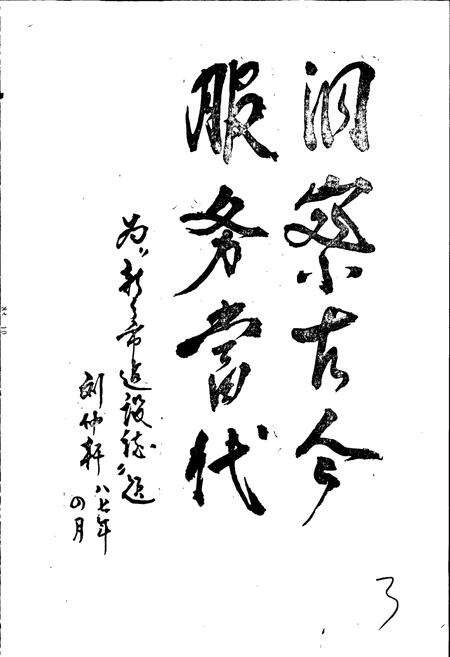 洞察古今
服务當代
为"新乡市建设志"题
刘仲轩 八七年
四月
3